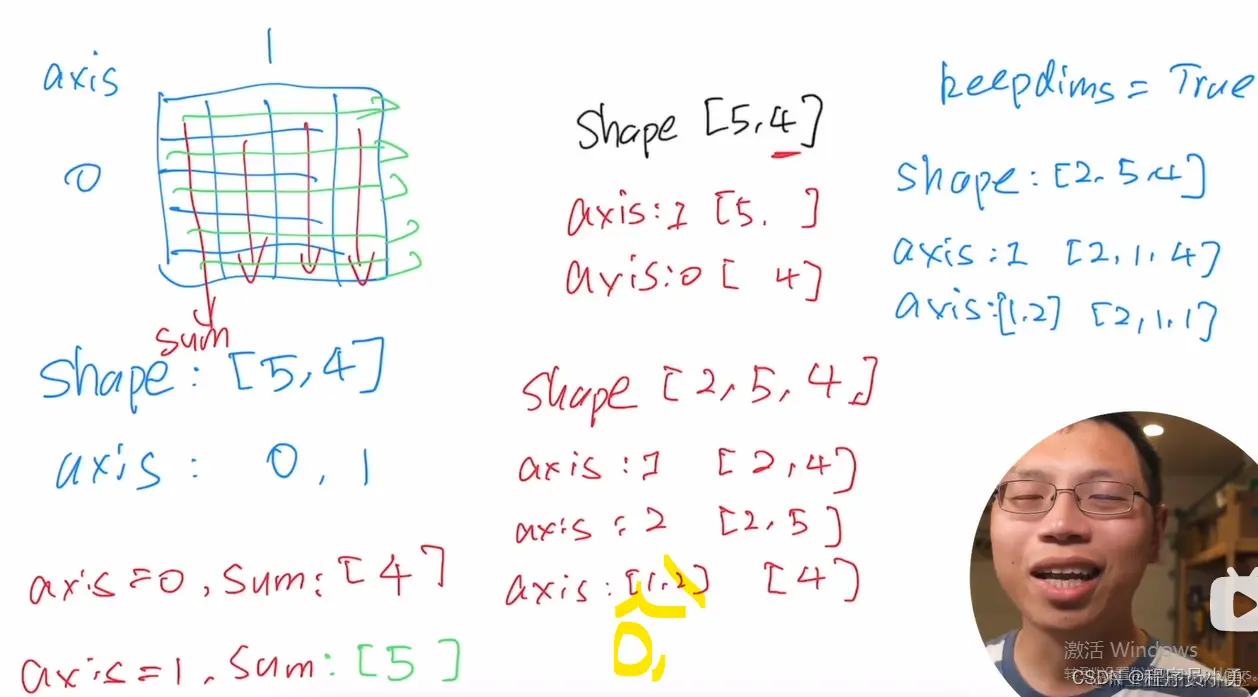 axis
1
0
sum
shape: [5,4]
axis: 0, 1
axis=0, sum: [4]
axis=1, sum: [5]
shape [5,4]
axis:1 [5. ]
axis:0 [ 4]
shape [2,5,4,]
axis:1 [2,4]
axis:2 [2,5]
axis:[1,2] [4]
0,1
keepdims = True
shape: [2,5,4]
axis:1 [2,1,4]
axis:[1,2] [2,1,1]
激活 Windows
CSDN @程序员小勇